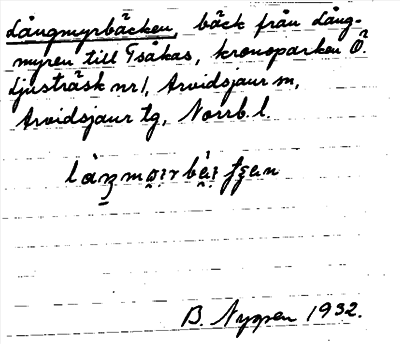 Långmyrbäcken, bäck från Lång-
myren till Tsåkas, kronoparken Ö.
Ljusträsk nr 1, Arvidsjaur sn,
Arvidsjaur tg, Norrb. l.
B. Nygren 1932.